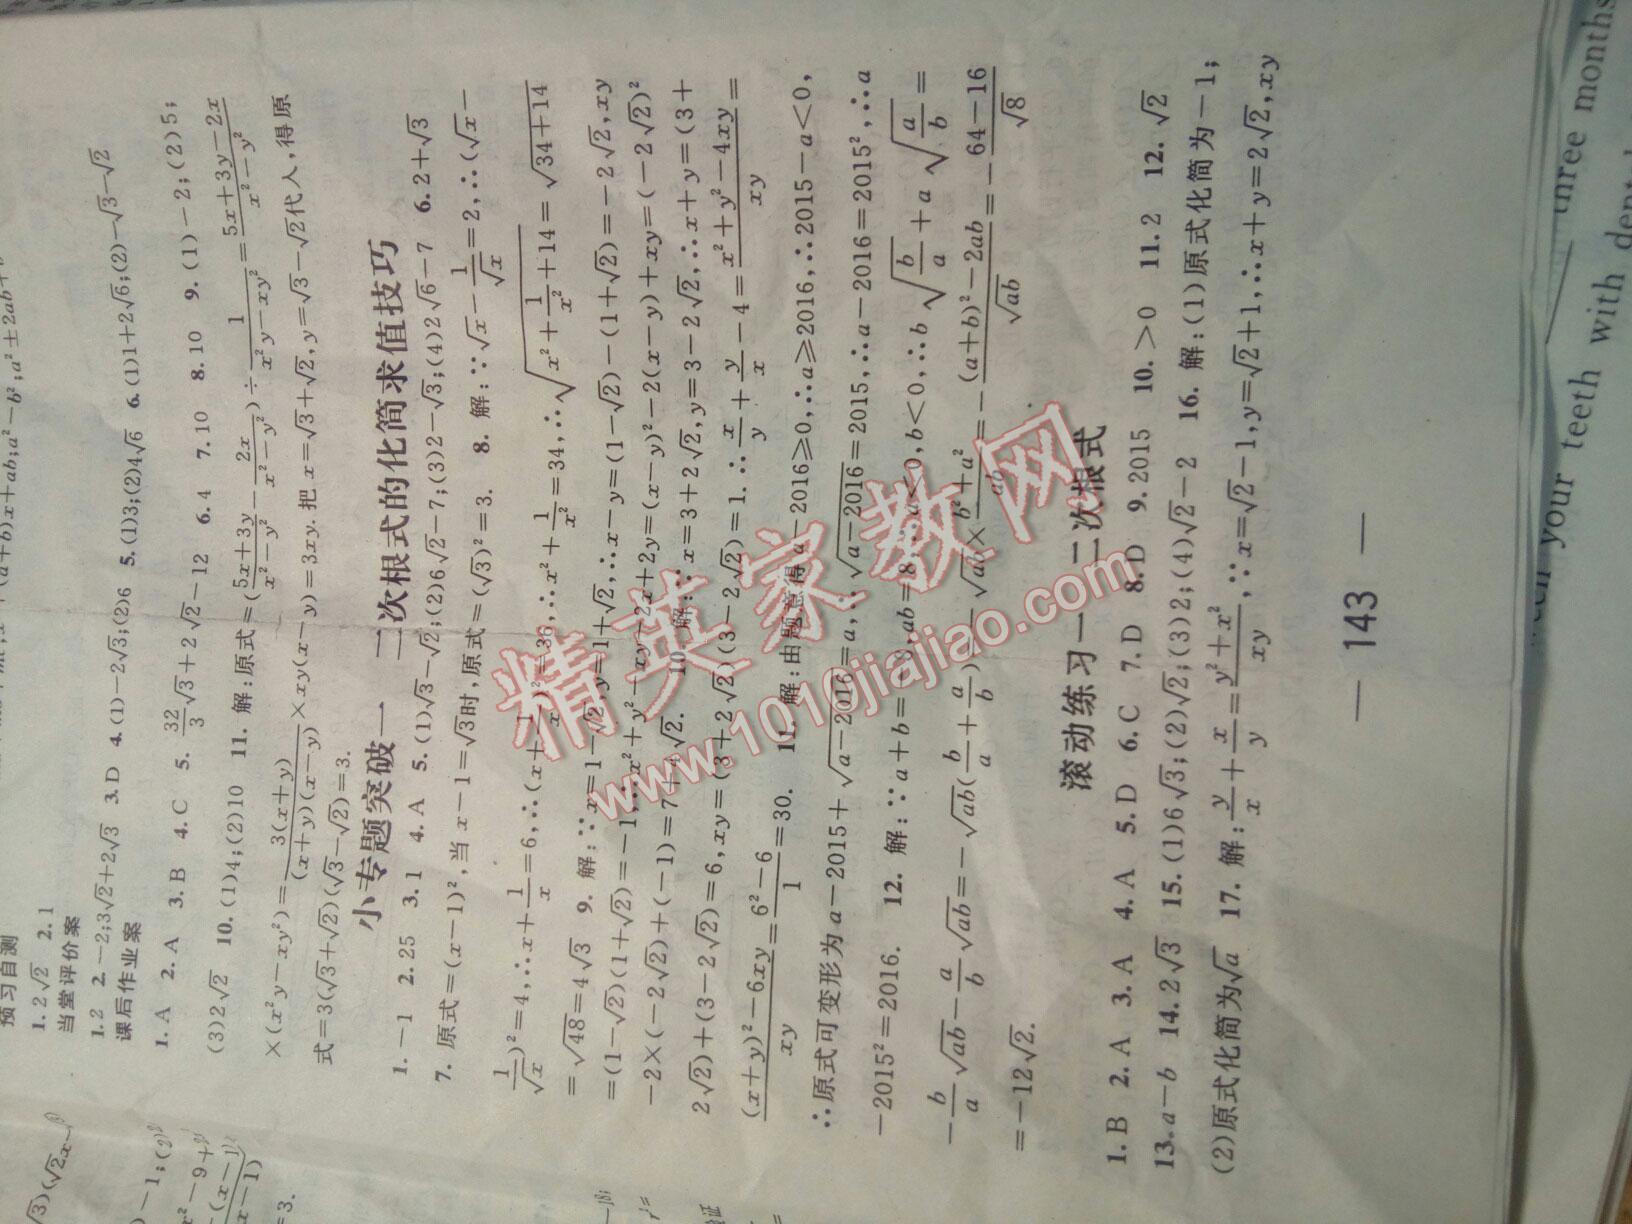 预习自测
1. 2√2  2. 1
当堂评价案
1. 2  2. －2;3√2＋2√3  3. D  4. (1)－2√3;(2)6  5. (1)3;(2)4√6  6. (1)1＋2√6;(2)－√3－√2
课后作业案
1. A  2. A  3. B  4. C  5. 32/3√3＋2√2－12  6. 4  7. 10  8. 10  9. (1)－2;(2)5;
(3)2√2  10. (1)4;(2)10  11. 解:原式＝((5x＋3y)/(x²－y²)－2x/(x²－y²))÷1/(x²y－xy²)＝(5x＋3y－2x)/(x²－y²)
×(x²y－xy²)＝3(x＋y)/((x＋y)(x－y))×xy(x－y)＝3xy.把x＝√3＋√2,y＝√3－√2代入,得原
式＝3(√3＋√2)(√3－√2)＝3.
小专题突破一 二次根式的化简求值技巧
1. －1  2. 25  3. 1  4. A  5. (1)√3－√2;(2)6√2－7;(3)2－√3;(4)2√6－7  6. 2＋√3
7. 原式＝(x－1)²,当x－1＝√3时,原式＝(√3)²＝3.  8. 解:∵√x－1/√x＝2,∴(√x－
1/√x)²＝4,∴x＋1/x＝6,∴(x＋1/x)²＝36,∴x²＋1/x²＝34,∴√(x²＋1/x²＋14)＝√(34＋14)
＝√48＝4√3  9. 解:∵x＝1－√2,y＝1＋√2,∴x－y＝(1－√2)－(1＋√2)＝－2√2,xy
＝(1－√2)(1＋√2)＝－1,∴x²＋y²－xy－2x＋2y＝(x－y)²－2(x－y)＋xy＝(－2√2)²
－2×(－2√2)＋(－1)＝7＋4√2.  10. 解:∵x＝3＋2√2,y＝3－2√2,∴x＋y＝(3＋
2√2)＋(3－2√2)＝6,xy＝(3＋2√2)(3－2√2)＝1.∴x/y＋y/x－4＝(x²＋y²－4xy)/xy＝
((x＋y)²－6xy)/xy＝(6²－6)/1＝30.  11. 解:由题意得a－2016≥0,∴a≥2016,∴2015－a＜0,
∴原式可变形为a－2015＋√(a－2016)＝a,∴√(a－2016)＝2015,∴a－2016＝2015²,∴a
－2015²＝2016.  12. 解:∵a＋b＝－8,ab＝8,∴a＜0,b＜0,∴b√(b/a)＋a√(a/b)＝
－b/a√ab－a/b√ab＝－√ab(b/a＋a/b)＝－√ab×(b²＋a²)/ab＝－((a＋b)²－2ab)/√ab＝－(64－16)/√8
＝－12√2.
滚动练习一 二次根式
1. B  2. A  3. A  4. A  5. D  6. C  7. D  8. D  9. 2015  10. ＞0  11. 2  12. √2
13. a－b  14. 2√3  15. (1)6√3;(2)√2;(3)2;(4)√2－2  16. 解:(1)原式化简为－1;
(2)原式化简为√a  17. 解:y/x＋x/y＝(y²＋x²)/xy,∵x＝√2－1,y＝√2＋1,∴x＋y＝2√2,xy
— 143 —
精英家教网
www.1010jiajiao.com
your teeth with
three months